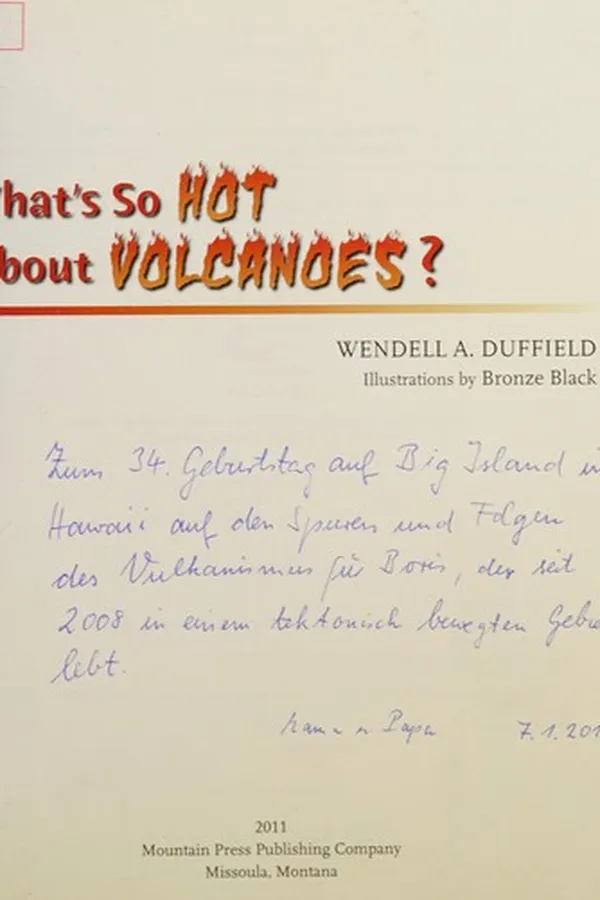 hat's So HOT
bout VOLCANOES?
WENDELL A. DUFFIELD
Illustrations by Bronze Black
Zum 34. Geburtstag auf Big Island in
Hawaii auf den Spuren und Folgen
des Vulkanismus für Boris, der seit
2008 in einem tektonisch bewegten Gebie
lebt.
Mama u Papa 7.1.201
2011
Mountain Press Publishing Company
Missoula, Montana